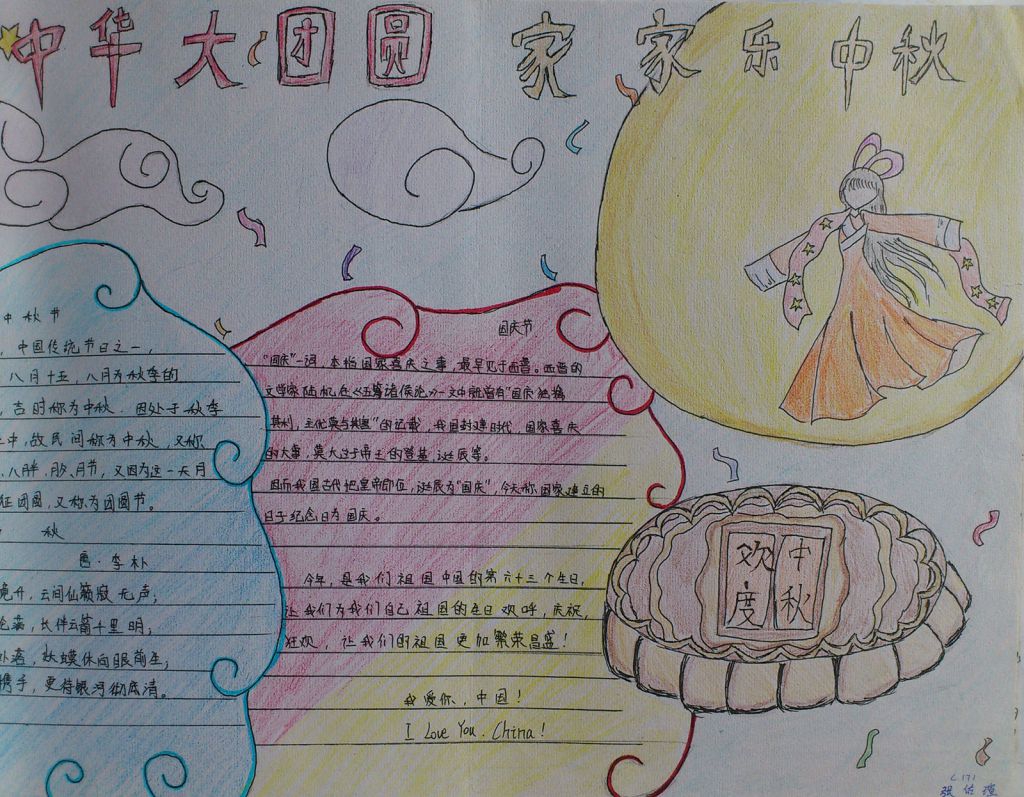 中华大团圆 家家乐中秋
中秋节
，中国传统节日之一，
八月十五，八月为秋季的
，古时称为中秋．因处于秋季
之中，故民间称为中秋，又称
、八月半、月夕、月节，又因为这一天月
狂团圆，又称为团圆节。
秋
唐·李朴
升，云间仙籁寂无声；
，长伴云衢千里明；
，妖蟆休向眼前生；
携手，更待银河彻底清。
国庆节
“国庆”一词，本指国家喜庆之事，最早见于西晋。西晋的
文学家陆机在《五等诸侯论》一文中就曾有“国庆独飨
其利，主忧莫与其害”的记载，我国封建时代，国家喜庆
的大事，莫大过于帝王的登基、诞辰等。
因而我国古代把皇帝即位、诞辰为“国庆”，今天称国家建立的
日子纪念日为国庆。
今年，是我们祖国中国的第六十三个生日，
让我们为我们自己祖国的生日欢呼，庆祝，
狂欢，让我们的祖国更加繁荣昌盛！
我爱你，中国！
I Love You. China!
中秋
欢度